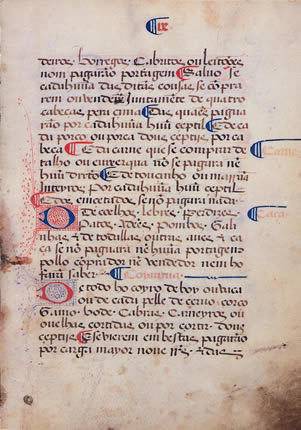 ix
deiros. borregos. Cabritos ou leitoões
nom pagarão portagem Saluo se
cada huũa das ditas cousas se comprã
rem ou venderem juntamẽte de quatro
cabeças pera cima Das quaes paga
rão por cada huũa huũ ceptil E de ca
da porco ou porca dous ceptijs por ca
beça E da carne que se comprar de
talho ou enxerqua nõ se pagara ne
huũ dirẽto E de toucinho ou marrãã
Inteyros por cada huũ huũ ceptil
E dos encetados se nõ pagara nada
Carne
E de coelhos. lebres. perdizes
patos. Adẽes. pombos. Gali
nhas E de todallas outras aues e ca
ça se nõ pagara nehuũa portagem
pollo cõprador nẽ vendedor nem ho
farã saber
Caça
Coirama
De todo ho coyro de boy ou vaca
ou de cada pelle de ceruo. corço
Gamo. bode. Cabras. Carneyros ou
ouelhas cortidas ou por cortir. dous
ceptijs E se vierem em bestas pagarão
por carga mayor noue rrs. E das